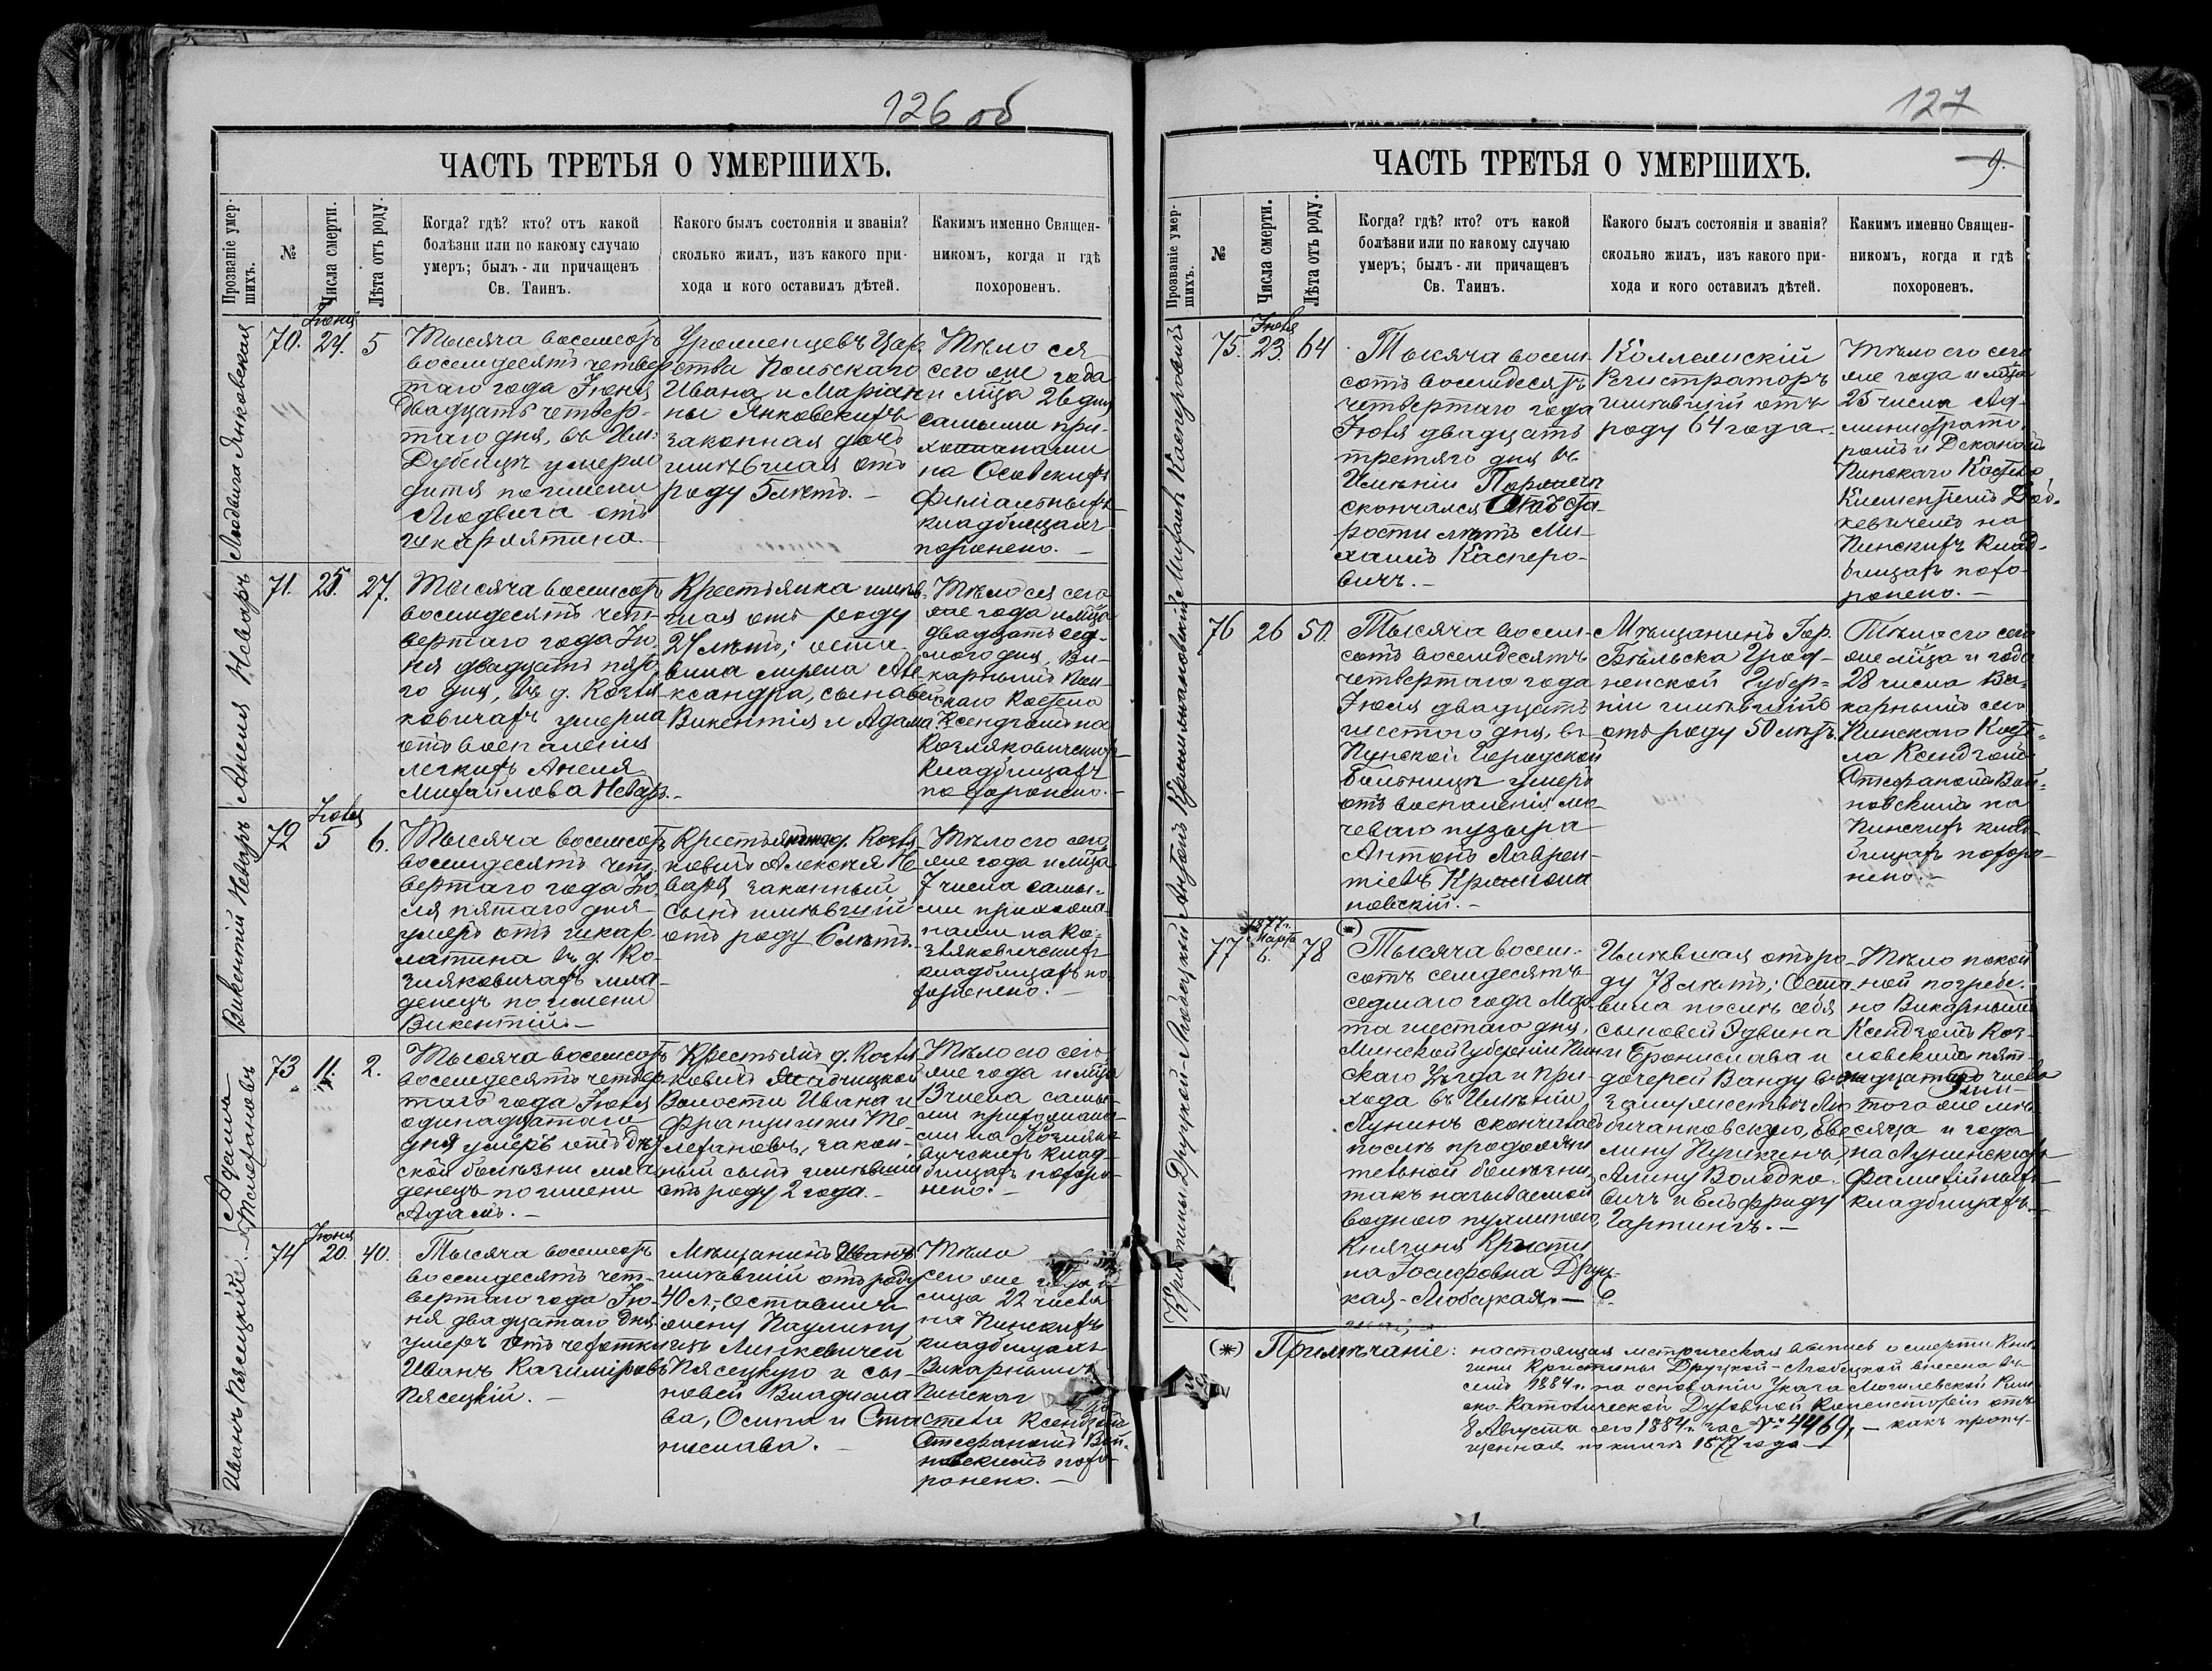 126 об
ЧАСТЬ ТРЕТЬЯ О УМЕРШИХЪ.
Прозваніе умер-
шихъ.
№
Числа смерти.
Лѣта отъ роду.
Когда? гдѣ? кто? отъ какой
болѣзни или по какому случаю
умеръ; былъ-ли причащенъ
Св. Таинъ.
Какого былъ состоянія и званія?
сколько жилъ, изъ какого при-
хода и кого оставилъ дѣтей.
Какимъ именно Священ-
никомъ, когда и гдѣ
похороненъ.
Людвига Янковская
70.
Іюня
24.
5
Тысяча восемсотъ
восемдесятъ четвер
таго года Іюня
двадцать четвер-
таго дня, въ Им:
Дубенцъ умерло
дитя по имени
Людвига отъ
шкарлятина.
Уроженцевъ Цар
ства Польскаго
Ивана и Маріан
ны Янковскихъ
законная дочь
имѣвшая отъ
роду 5 лѣтъ. —
Тѣло ея
сего же года
и м-ца 26 дня
самыми при-
хожанами
на Осовскихъ
филіальныхъ
кладбищахъ
похоронено. —
Анеля Неваръ
71.
25.
27.
Тысяча восемсотъ
восемдесятъ чет-
вертаго года Ію-
ня двадцать пято
го дня, въ д. Козля-
ковичахъ умерла
отъ воспаленія
легкихъ Анеля
Михайлова Неваръ. —
Крестьянка имѣв-
шая отъ роду
27 лѣтъ; оста
вила мужа Але
ксандра, сыновей
Викентія и Адама
Тѣло ея сего
же года и м-ца
двадцать сед-
мого дня, Ви-
карнымъ Пин-
скаго Костела
Ксендзомъ на
Козляковичскихъ
кладбищахъ
похоронено. —
Викентій Неваръ
72
Іюля
5
6.
Тысяча восемсотъ
восемдесятъ чет-
вертаго года Ію
ля пятаго дня
умеръ отъ шкар
латина въ д. Ко-
зляковичахъ мла-
денецъ по имени
Викентій. —
Крестьянина д. Козля
ковичъ Алексѣя Не
вара, законный
сынъ имѣвшій
отъ роду 6 лѣтъ. —
Тѣло его сего
же года и м-ца
7 числа самы-
ми прихожа-
нами на Ко-
зляковичскихъ
кладбищахъ по-
хоронено. —
Адамъ
73
11.
2.
Тысяча восемсотъ
восемдесятъ четвер
таго года Іюля
одинадцатаго
дня умеръ отъ дѣт
ской болѣзни мла
денецъ по имени
Адамъ. —
Крестьянъ д. Козля
ковичъ
Волости Ивана и
Францишки
законный сынъ имѣвшій
отъ роду 2 года. —
Тѣло его сего
же года и м-ца
13 числа самы-
ми прихожана-
ми на Козляко-
вичскихъ клад-
бищахъ похоро-
нено. —
Иванъ Пясецкій
74
Іюня
20.
40.
Тысяча восемсотъ
восемдесятъ чет-
вертаго года Ію-
ня двадцатаго дня
умеръ отъ чехотки
Иванъ Казиміровъ
Пясецкій. —
Мѣщанинъ Иванъ
имѣвшій отъ роду
40 л., оставилъ
жену Паулину
изъ Линкевичей
Пясецкую и сы-
новей Владисла
ва, Осипа и Ста
нислава. —
Тѣло
сего же года и
м-ца 22 числа
на Пинскихъ
кладбищахъ
Викарнымъ
Пинскаг
стела Ксендзомъ
Стефаномъ Вой-
новскимъ похо-
ронено. —
127
9.
ЧАСТЬ ТРЕТЬЯ О УМЕРШИХЪ.
Прозваніе умер-
шихъ.
№
Числа смерти.
Лѣта отъ роду.
Когда? гдѣ? кто? отъ какой
болѣзни или по какому случаю
умеръ; былъ-ли причащенъ
Св. Таинъ.
Какого былъ состоянія и званія?
сколько жилъ, изъ какого при-
хода и кого оставилъ дѣтей.
Какимъ именно Священ-
никомъ, когда и гдѣ
похороненъ.
Михаилъ Касперовичъ
75.
Іюля
23.
64
Тысяча восем-
сотъ восемдесятъ
четвертаго года
Іюля двадцать
третяго дня въ
Имѣніи
скончался отъ ста-
рости лѣтъ Ми-
хаилъ Касперо-
вичъ. —
Коллежскій
Регистраторъ
имѣвшій отъ
роду 64 года.
Тѣло его сего
же года и м-ца
25 числа Ад-
министрато-
ромъ и Деканомъ
Пинскаго Костела
Климентіемъ
на
Пинскихъ клад-
бищахъ похо-
ронено. —
76
26
50.
Тысяча восем-
сотъ восемдесятъ
четвертаго года
Іюля двадцать
шестого дня, въ
Пинской городской
больницѣ умеръ
отъ воспаленія мо-
чеваго пузыря
Антонъ Лаврен-
тіевъ
Мѣщанинъ Гор.
Бѣльска Грод-
ненской Губер-
ніи имѣвшій
отъ роду 50 лѣтъ.
Тѣло его сего
же м-ца и года
28 числа Ви-
карнымъ сего
Пинскаго Косте-
ла Ксендзомъ
Стефаномъ Вой-
новскимъ на
Пинскихъ клад-
бищахъ похоро-
нено. —
Кристины Друцкой-Любецкой
77
1877 г.
Марта
6.
78
(*)
Тысяча восем-
сотъ семдесятъ
седмаго года Мар-
та шестаго дня,
Минской Губерніи Пин
скаго Уѣзда и при-
хода въ Имѣніи
Лунинъ скончалась
послѣ продолжи
тельной болѣзни
такъ называемой
водною пухлиною
Княгиня Кристи
на Іосифовна Друц-
кая-Любецкая. —
Имѣвшая отъ ро-
ду 78 лѣтъ; Оста-
вила послѣ себя
сыновей Эдвина
и Бронислава и
дочерей Ванду въ
замужествѣ Лю
бичанковскую, Еве
лину Пушкинъ,
Алину Володко-
вичъ и Ельфриду
Гартингъ. —
Тѣло покой
ной погребе-
но Викарнымъ
Ксендзомъ Коз-
ловскимъ пят-
надцатаго числа
того же мѣ-
сяца и года
на Лунинскихъ
фамилійныхъ
кладбищахъ. —
(*) Примѣчаніе: настоящая метрическая выпись о смерти Кня-
гини Кристины Друцкой-Любецкой внесена въ
семъ 1884 г. на основаніи Указа Могилевской Рим
ско-Католической Духовной Консисторіи отъ
8 Августа сего 1884 г. за № 4469, — какъ пропу-
щенная по книгѣ 1877 года —